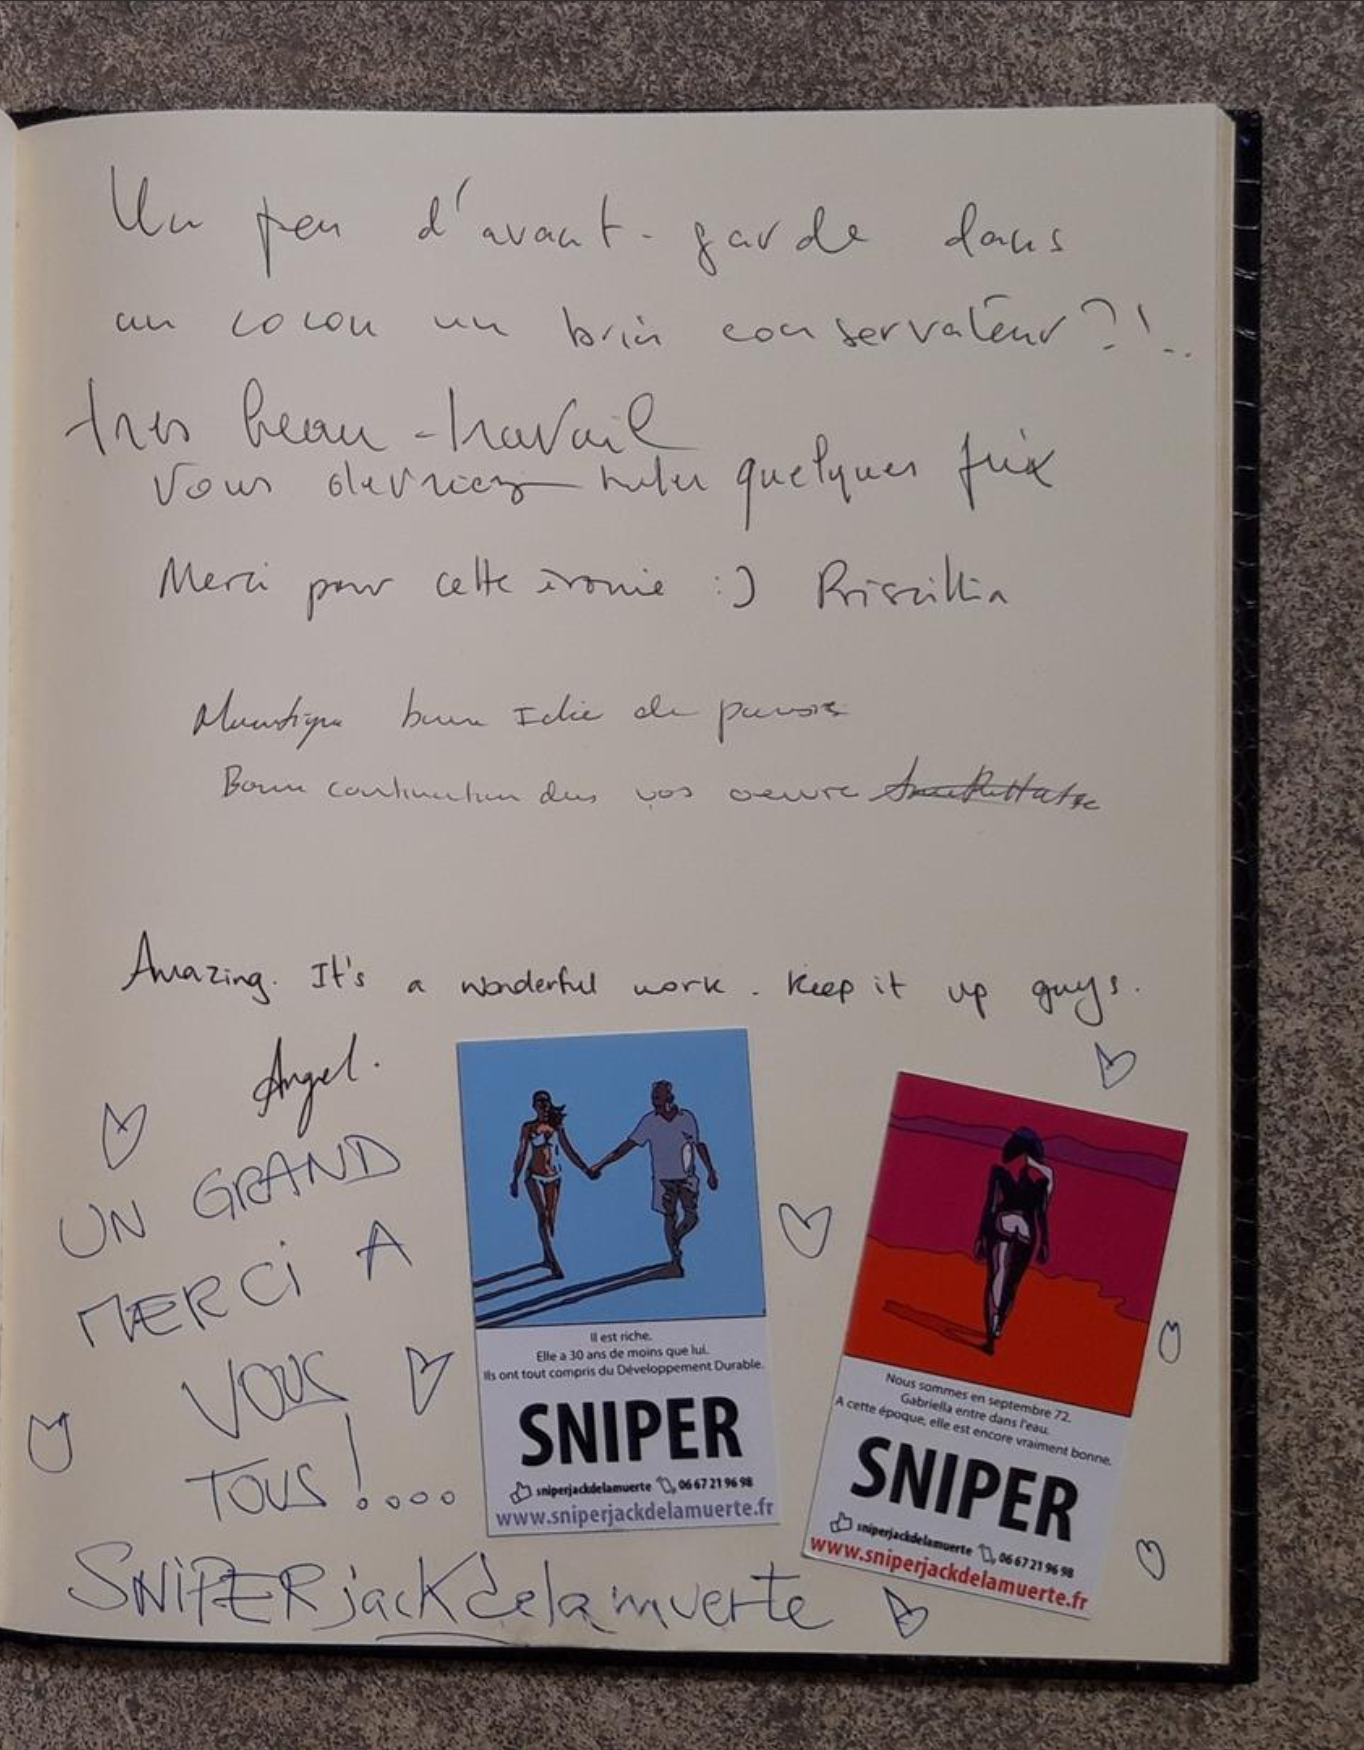 Un peu d'avant-garde dans
un cocon un brin conservateur ?!..
très beau travail
vous devriez quelques prix
Merci pour cette ironie :) Priscillia
bonne Idée de
Bonne continuation dans vos oeuvre
Amazing. It's a wonderful work. Keep it up guys.
Angel.
UN GRAND
MERCi A
VOUS
TOUS !....
SNiPERjackdelamuerte
Il est riche.
Elle a 30 ans de moins que lui.
Ils ont tout compris du Développement Durable.
SNIPER
sniperjackdelamuerte 06 67 21 96 98
www.sniperjackdelamuerte.fr
Nous sommes en septembre 72.
Gabriella entre dans l'eau.
A cette époque, elle est encore vraiment bonne.
SNIPER
sniperjackdelamuerte 06 67 21 96 98
www.sniperjackdelamuerte.fr